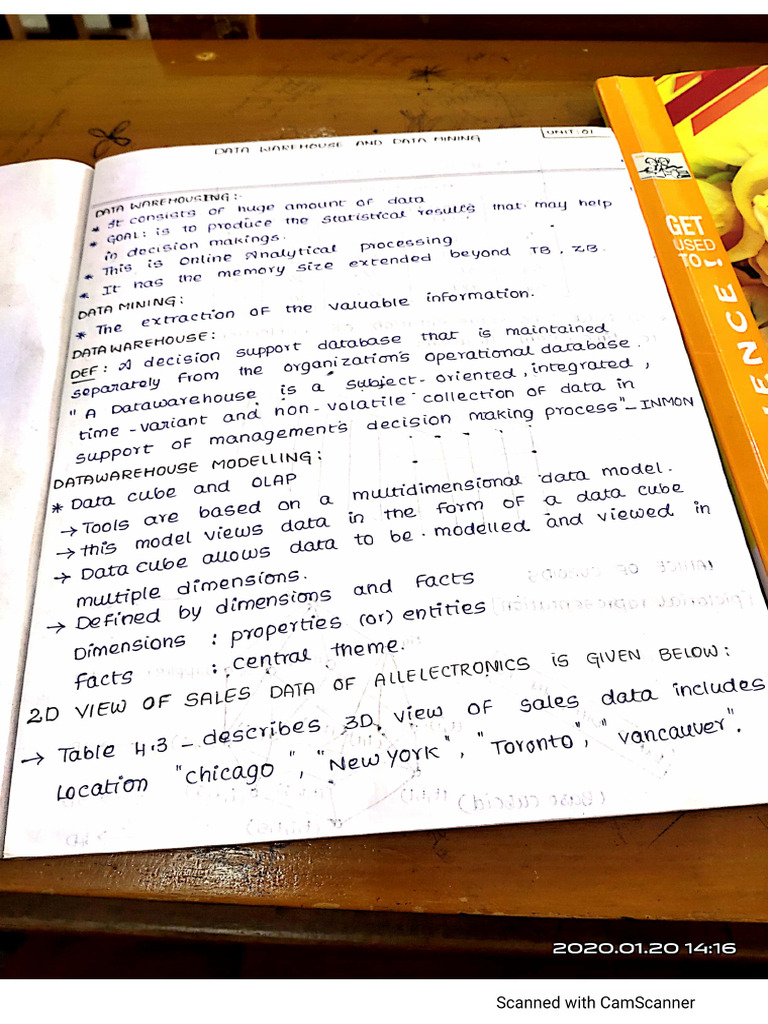 DATA WAREHOUSE AND DATA MINING
UNIT: 01
DATA WAREHOUSING:-
* It consists of huge amount of data
* GOAL: is to produce the statistical results that may help
in decision makings.
* This is Online Analytical processing
* It has the memory size extended beyond TB, ZB.
DATA MINING:
* The extraction of the valuable information.
DATAWAREHOUSE:
DEF: A decision support database that is maintained
separately from the organization's operational database.
"A Datawarehouse is a subject-oriented, integrated,
time-variant and non-volatile collection of data in
support of management's decision making process" - INMON
DATAWAREHOUSE MODELLING:
* Data cube and OLAP
→ Tools are based on a multidimensional data model.
→ this model views data in the form of a data cube
→ Data cube allows data to be modelled and viewed in
multiple dimensions.
→ Defined by dimensions and facts
Dimensions : properties (or) entities
facts : central theme.
2D VIEW OF SALES DATA OF ALLELECTRONICS IS GIVEN BELOW:
→ Table 4.3 - describes 3D view of sales data includes
Location "chicago", "New york", "Toronto", "vancauver".
GET
USED
TO!
ENCE
2020.01.20 14:16
Scanned with CamScanner